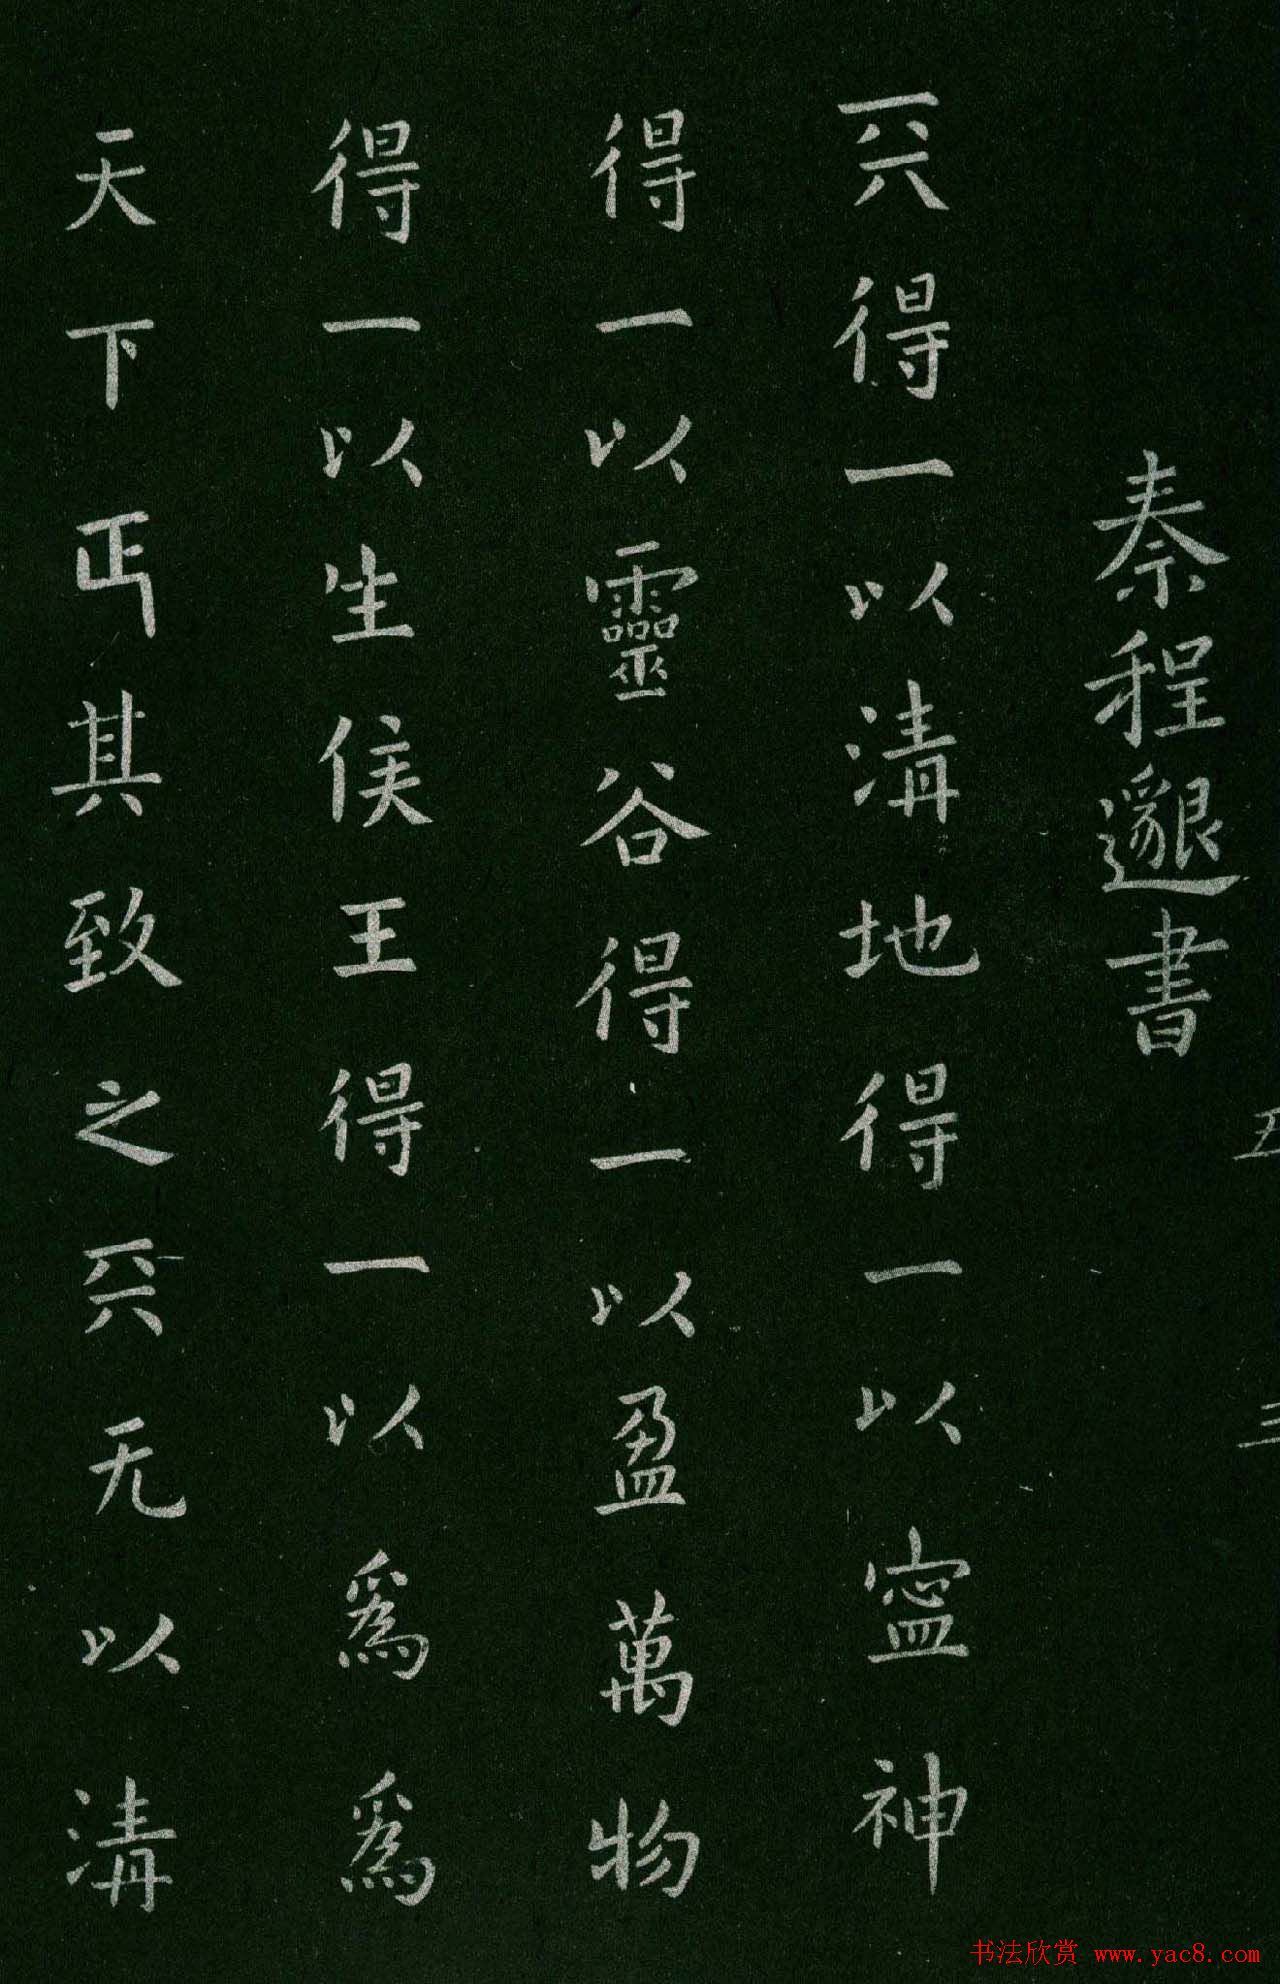 秦程邈書
天得一以清地得一以寍神
得一以靈谷得一以盈萬物
得一以生侯王得一以爲爲
天下正其致之天无以清
书法欣赏 www.yac8.com